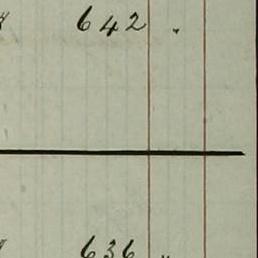 642 .
636 "